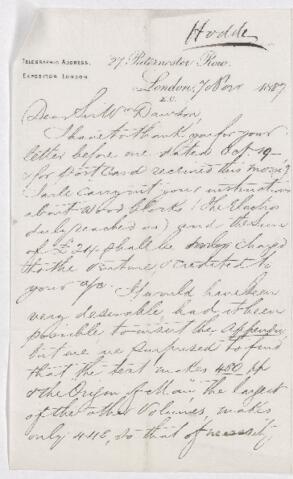 Hodder
TELEGRAPHIC ADDRESS,
EXPOSITOR LONDON
27, Paternoster Row.
London, 7 Nov 1887
E.C.
Dear Sir Wm Dawson,
I have to thank you for your
letter before me dated Oct. 19 —
& for Post Card received this morng
I will carry out your instructions
about Wood Blocks (the Electros
duly reached us) and the sum
of £24 shall be charged
to the venture, & credited to
your a/c. It would have been
very desirable, had it been
possible to insert the Appendix
but we are surprised to find
that the text makes 480 pp
& the Origin of Man, the largest
of the other Volumes, makes
only 448, so that of necessity